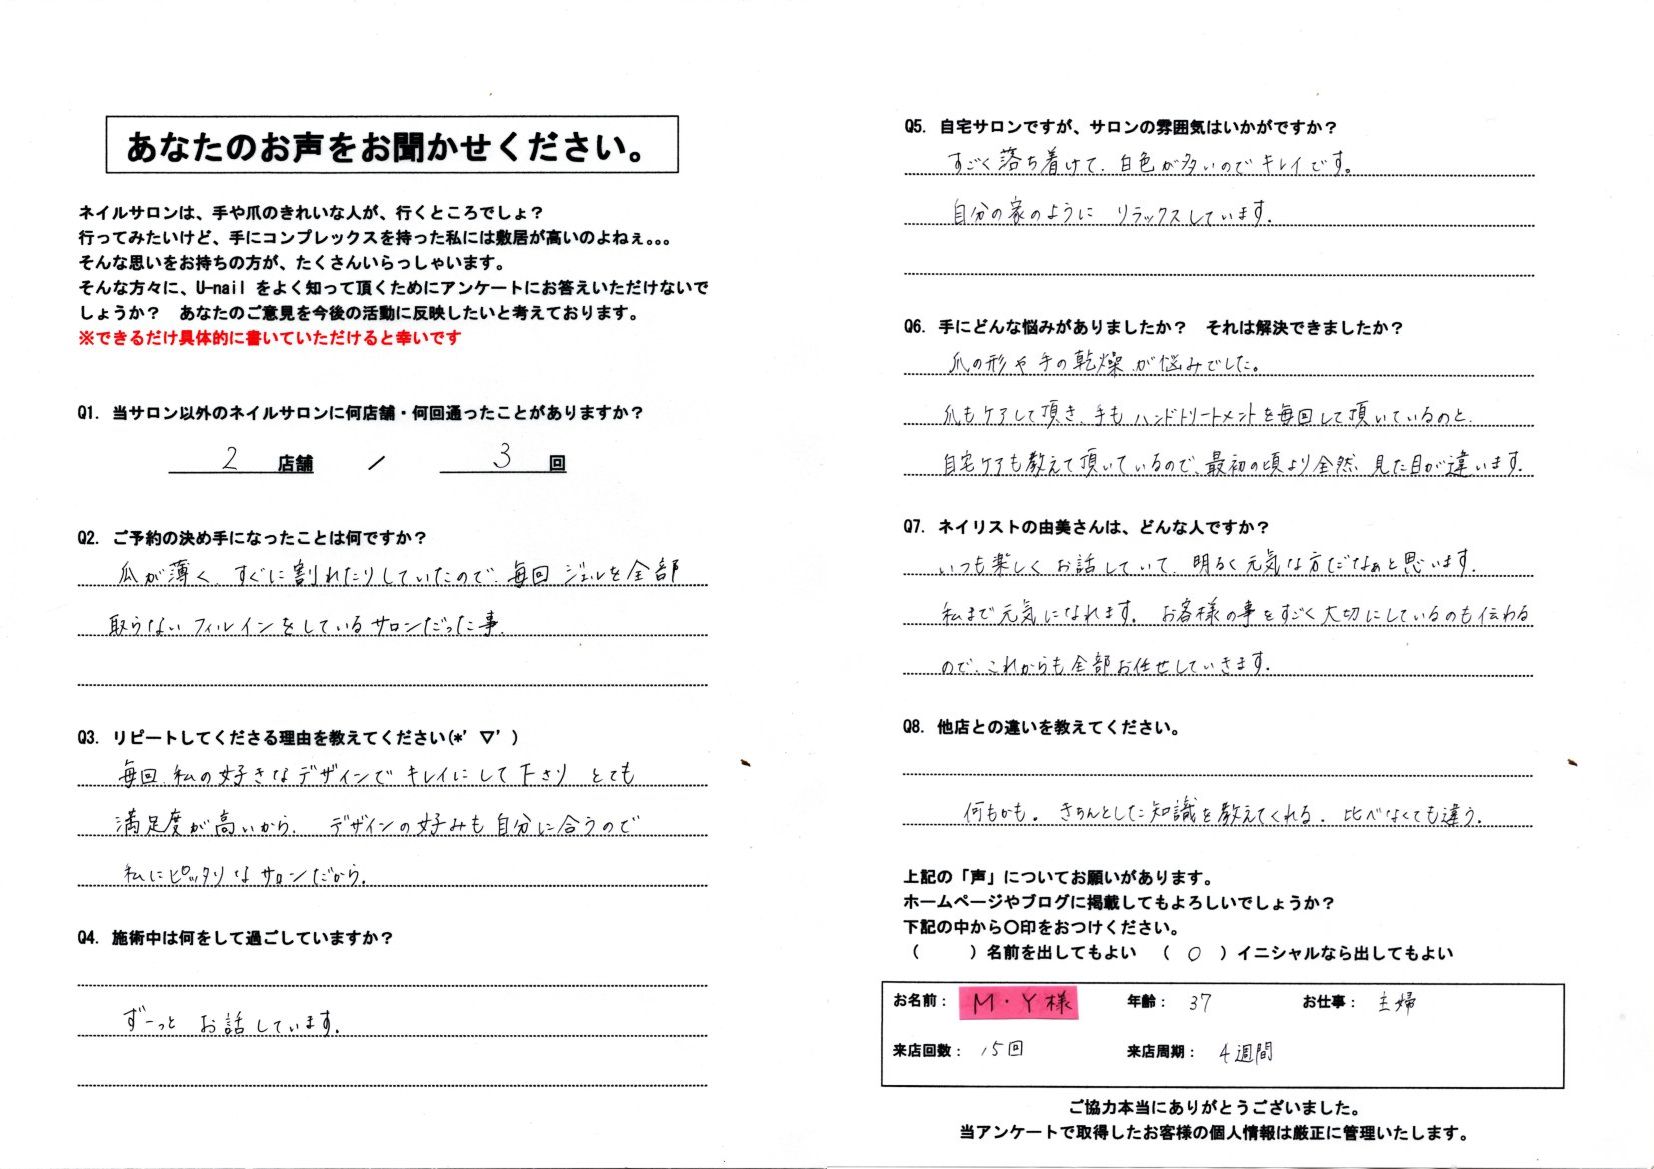 あなたのお声をお聞かせください。
ネイルサロンは、手や爪のきれいな人が、行くところでしょ？
行ってみたいけど、手にコンプレックスを持った私には敷居が高いのよねぇ。。。
そんな思いをお持ちの方が、たくさんいらっしゃいます。
そんな方々に、U-nail をよく知って頂くためにアンケートにお答えいただけないで
しょうか？　あなたのご意見を今後の活動に反映したいと考えております。
※できるだけ具体的に書いていただけると幸いです
Q1. 当サロン以外のネイルサロンに何店舗・何回通ったことがありますか？
2 店舗 ／ 3 回
Q2. ご予約の決め手になったことは何ですか？
爪が薄く、すぐに割れたりしていたので、毎回ジェルを全部
取らないフィルインをしているサロンだった事。
Q3. リピートしてくださる理由を教えてください(*’▽’)
毎回、私の好きなデザインでキレイにして下さり とても
満足度が高いから。 デザインの好みも自分に合うので
私にピッタリなサロンだから。
Q4. 施術中は何をして過ごしていますか？
ずーっと お話しています。
Q5. 自宅サロンですが、サロンの雰囲気はいかがですか？
すごく落ち着けて、白色が多いのでキレイです。
自分の家のように リラックスしています。
Q6. 手にどんな悩みがありましたか？　それは解決できましたか？
爪の形や手の乾燥が悩みでした。
爪もケアして頂き、手もハンドトリートメントを毎回して頂いているのと、
自宅ケアも教えて頂いているので、最初の頃より全然、見た目が違います。
Q7. ネイリストの由美さんは、どんな人ですか？
いつも楽しくお話していて、明るく元気な方だなぁと思います。
私まで元気になれます。 お客様の事をすごく大切にしているのも伝わる
ので、これからも全部お任せしていきます。
Q8. 他店との違いを教えてください。
何もかも。きちんとした知識を教えてくれる。比べなくても違う。
上記の「声」についてお願いがあります。
ホームページやブログに掲載してもよろしいでしょうか？
下記の中から〇印をおつけください。
（　　）名前を出してもよい　（ ○ ）イニシャルなら出してもよい
お名前： M・Y様 年齢： 37 お仕事： 主婦
来店回数： 15回 来店周期： 4週間
ご協力本当にありがとうございました。
当アンケートで取得したお客様の個人情報は厳正に管理いたします。